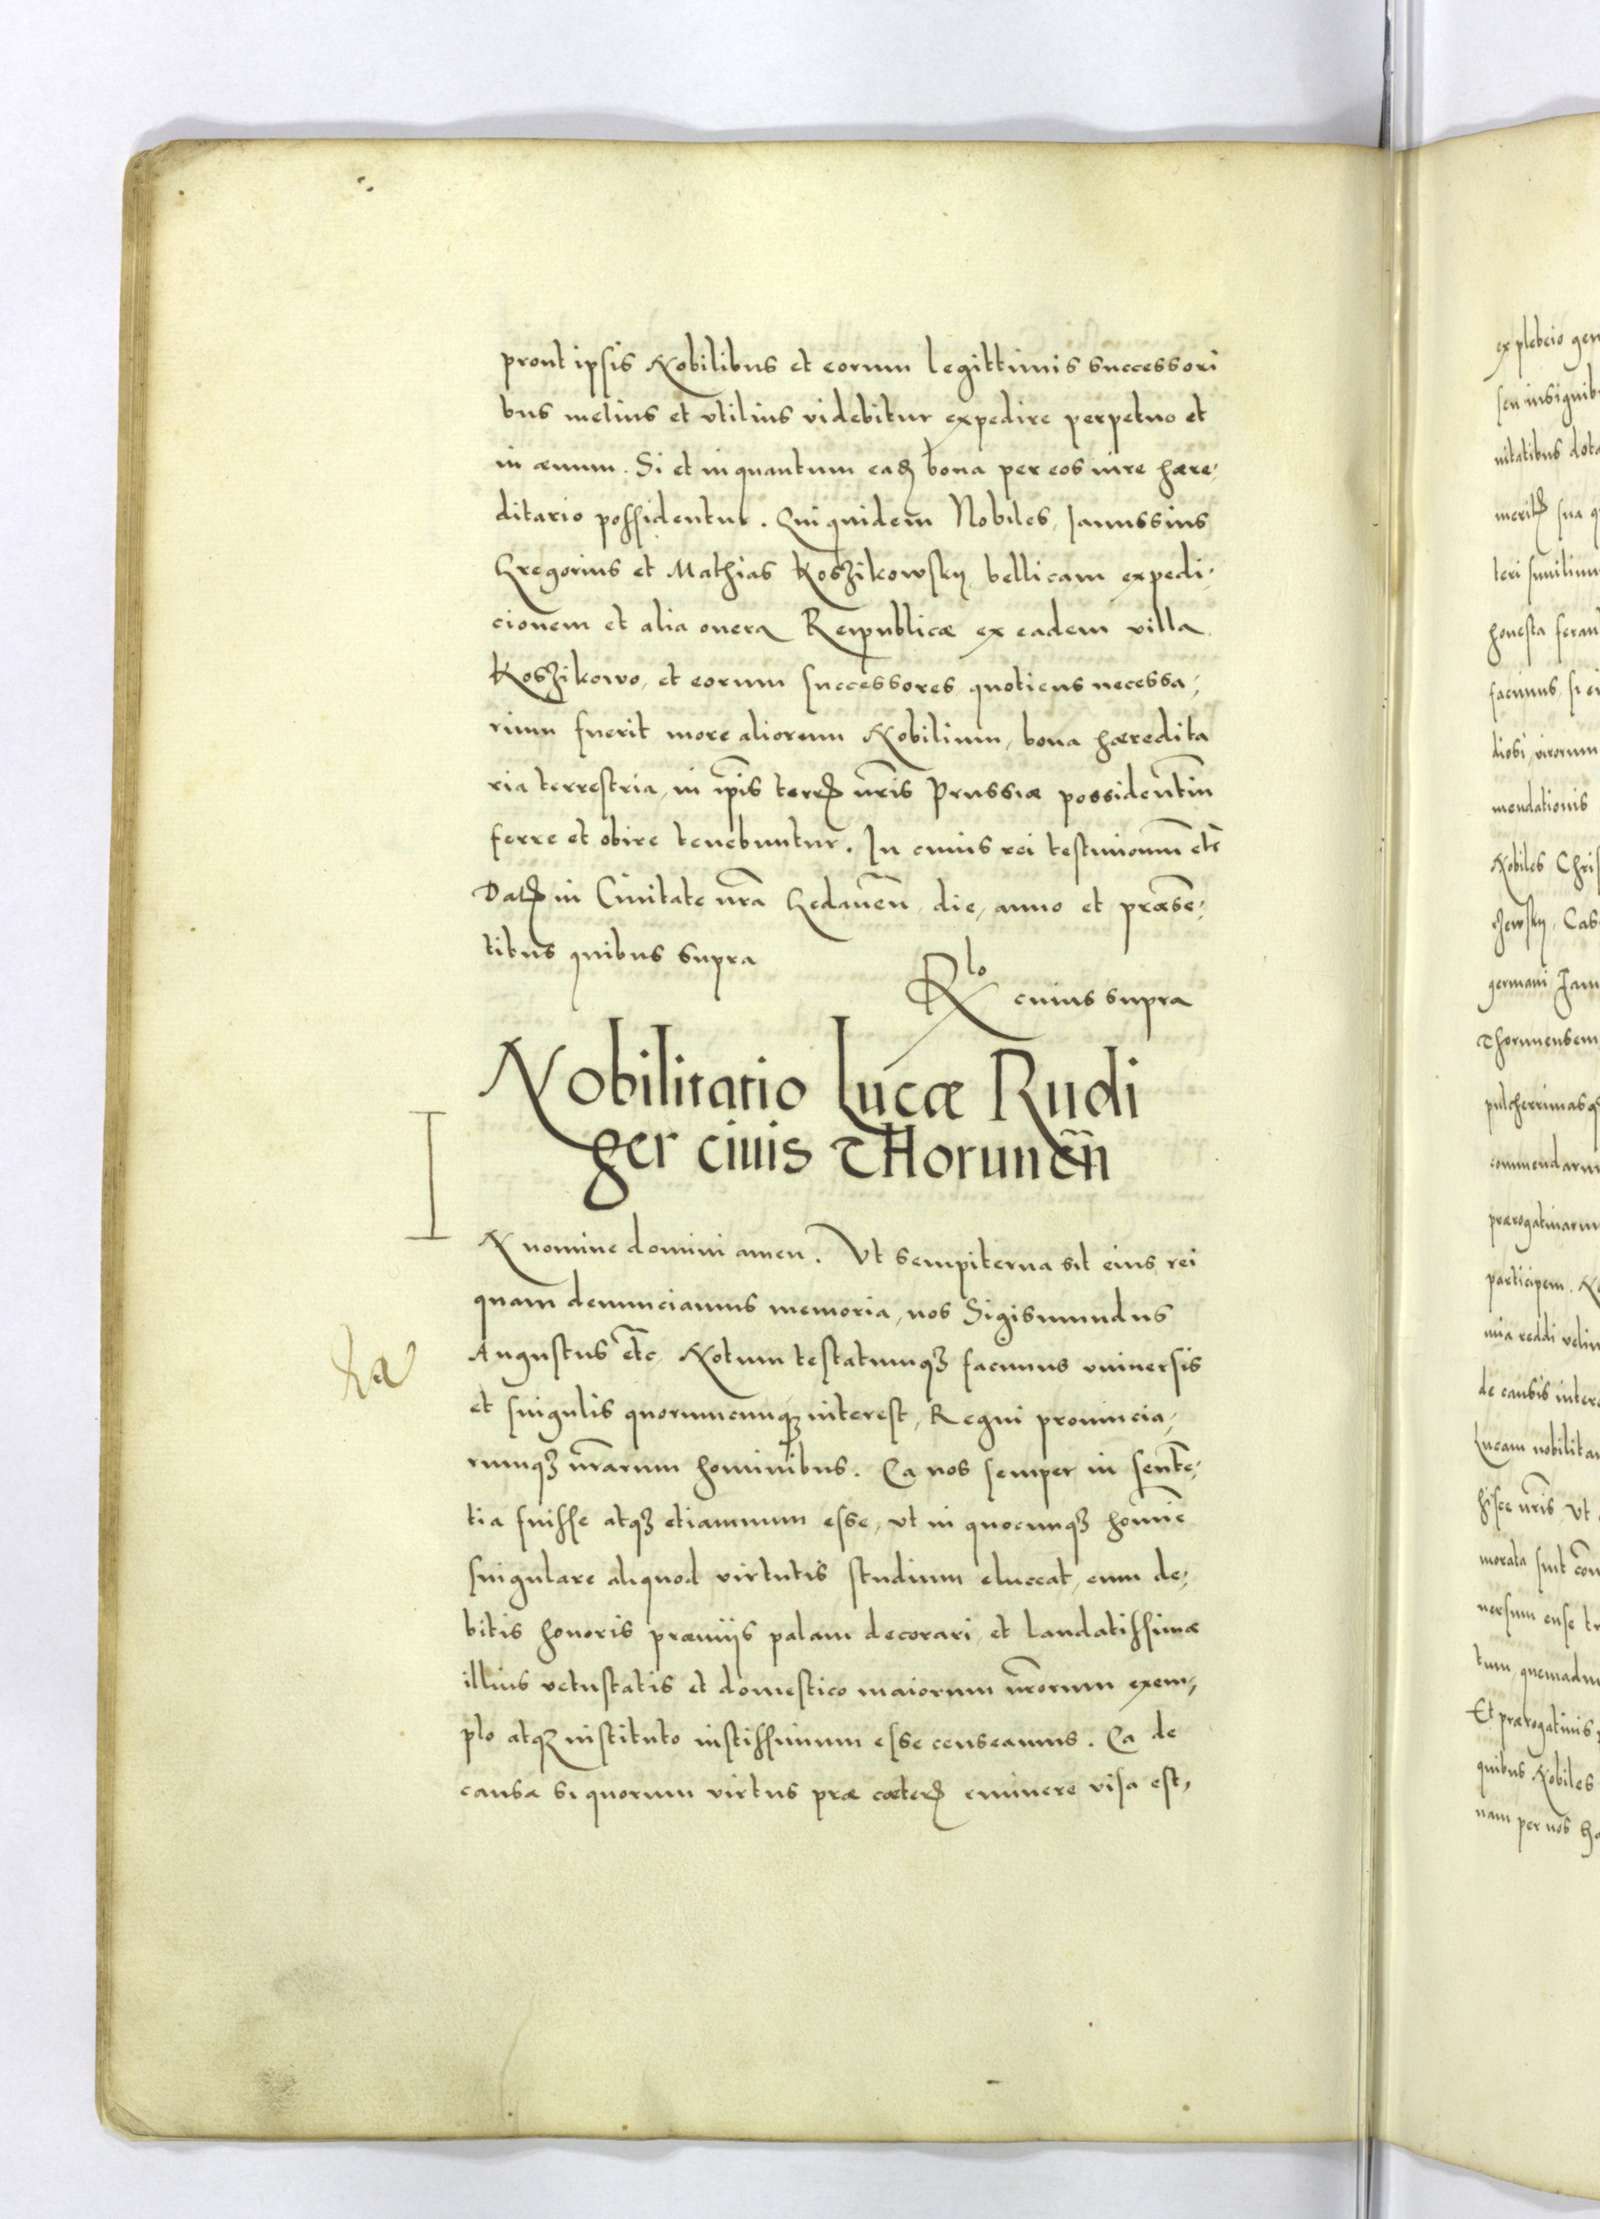 prout ipsis Nobilibus et eorum legittimis successori
bus melius et vtilius videbitur expedire perpetuo et
in æuum. Si et in quantum eadẽ bona per eos iure hære,
ditario possidentur. Qui quidem Nobiles, Ianussius
Gregorius et Mathias Koszikowsky bellicam expedi,
cionem et alia onera Reipublicæ ex eadem villa
Koszikowo, et eorum successores, quotiens necessa,
rium fuerit more aliorum Nobilium, bona hæredita
ria terrestria, in ip̃is terrꝭ nr̃is Prussiæ possidentiũ
ferre et obire tenebuntur. In cuius rei testimonium etc̃
Datꝭ in Ciuitate nr̃a Gedanen̄, die, anno et præsẽ,
tibus quibus supra
R^lo cuius supra
Nobilitatio Lucæ Rudi
ger ciuis Thorunen̄
I
N nomine domini amen. Vt sempiterna sit eius rei
quam denunciamus memoria, nos Sigismundus
Augustus etc̃, Notum testatumqꝫ facimus vniuersis
et singulis quorumcunqꝫ interest, Regni prouincia,
rumqꝫ nr̃arum hominibus. Ea nos semper in sentẽ,
tia fuisse atqꝫ etiamnum esse, vt in quocunqꝫ homĩe
singulare aliquod virtutis studium eluceat, eum de,
bitis honoris præmijs palam decorari, et laudatissimæ
illius vetustatis et domestico maiorum nr̃orum exem,
plo atqꝫ instituto iustissimum esse censeamus. Ea de
causa si quorum virtus præ cæterꝭ eminere visa est,
ex plebeio gen
seu insignib
nitatibus dota
meritꝭ sua q
teri similium
honesta feran
facimus, si ei
diosi, virorum
mendationis
Nobiles Chris
zewsky, Cas
germani Ian
Thorunensem
pulcherrimasq
commendarun
prærogatiuarum
participem. No
nia reddi velim
de causis inter
Lucam nobilita
hisce nr̃is. Vt
morata sint con
uersum ense tr
tum, quemadm
Et prærogatiuis p
quibus Nobiles
nam per nos ha